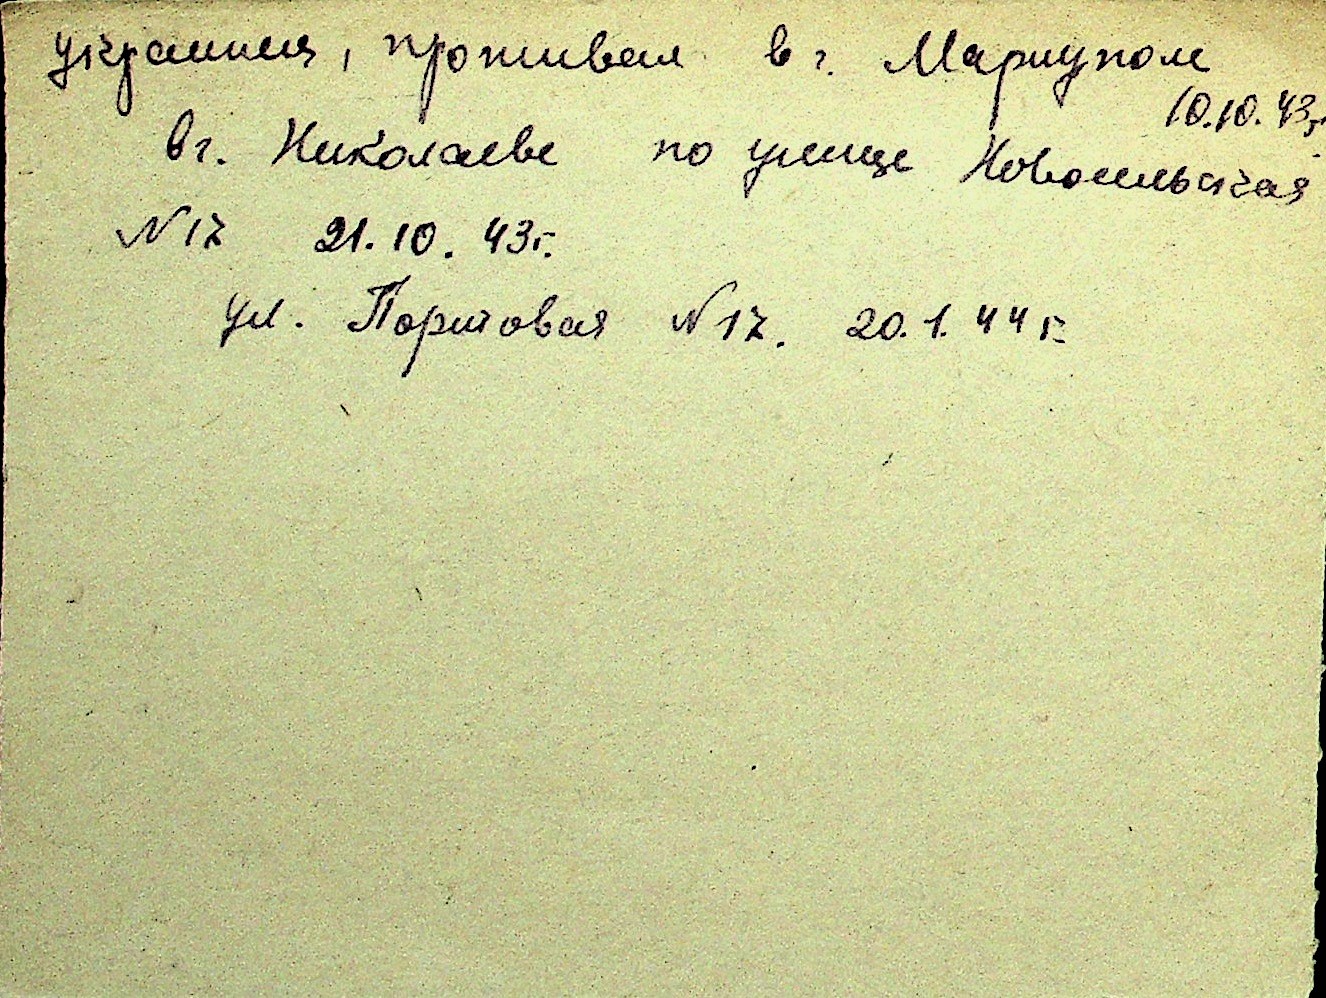 украинец, проживал в г. Мариуполе
10.10.43г.
в г. Николаеве по улице Новосельская
N 17 21.10.43г.
ул. Портовая N 17. 20.1.44г.